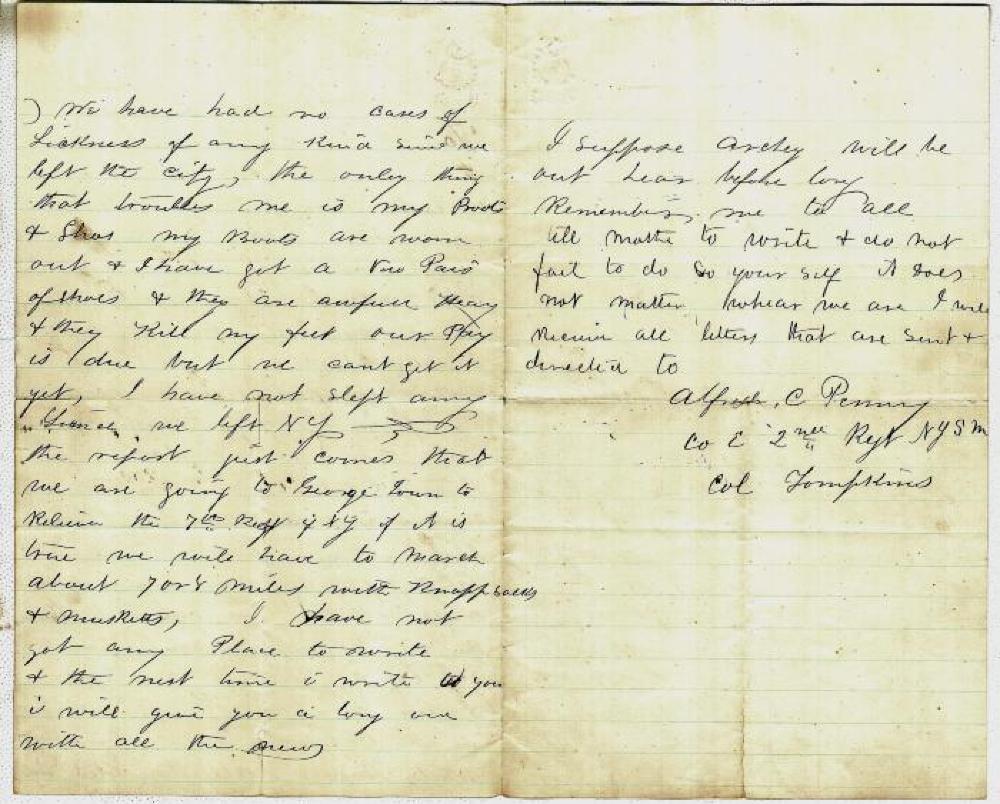 ) We have had no cases of
Sickness of any Kind since we
left the city, the only thing
that troubles me is my Boots
& Shos my Boots are worn
out & I have got a new Pair
of Shoes & they are awfull Heavy
& they Kill my feet our Pay
is due but we cant get it
yet, I have not slept any
Since we left NY
the report just comes that
we are going to George Town to
Relieve the 7th Regt of NY if it is
true we will have to march
about 7 or 8 miles with Knappsacks
& musketts, I have not
got any Place to write
& the next time i write to you
i will give you a long one
with all the news
I suppose Archey will be
out hear before long
Remember me to all
tell mother to write & do not
fail to do so your self it does
not matter whear we are I will
receive all letters that are sent &
directed to
Alfred. C Penny
Co E 2nd Regt NYSM
Col Tompkins